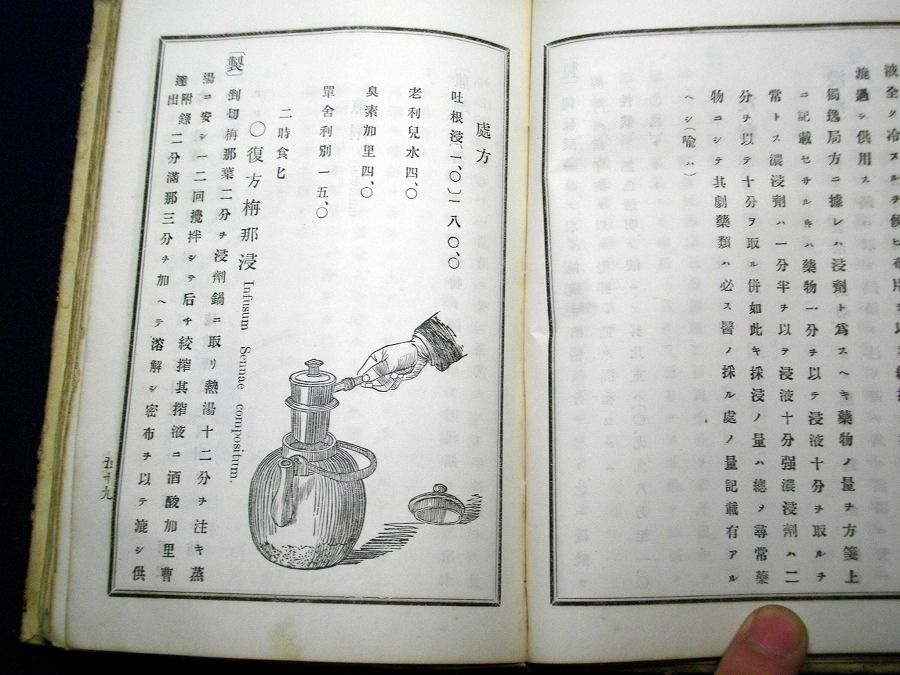 濾過シ供用ス
獨逸局方ニ據レハ浸劑ト爲スヘキ藥物ノ量チ方箋上
ニ記載セサルキハ藥物一分チ以テ浸液十分チ取ルチ
常トス濃浸劑ハ一分半チ以テ浸液十分强濃浸劑ハ二
分チ以テ十分ヲ取ル併如此キ採浸ノ量ハ總メ尋常藥
物ニシテ其劇藥類ハ必ス醫ノ採ル處ノ量記載有アル
ヘシ(喩ハ)
處方
吐根浸(一、〇)一八〇、〇
老利兒水四、〇
臭素加里四、〇
單舍利別一五、〇
二時食匕
〇復方栴那浸 Infusum Sennae compositum.
〔製〕剉切栴那葉二分チ浸劑鍋ニ取リ熱湯十二分チ注キ蒸
湯ニ安シ一二回攪拌シテ后チ絞搾其搾液ニ酒酸加里曹
達附錄出二分滿那三分チ加ヘテ溶解シ密布チ以テ漉シ供
五十九